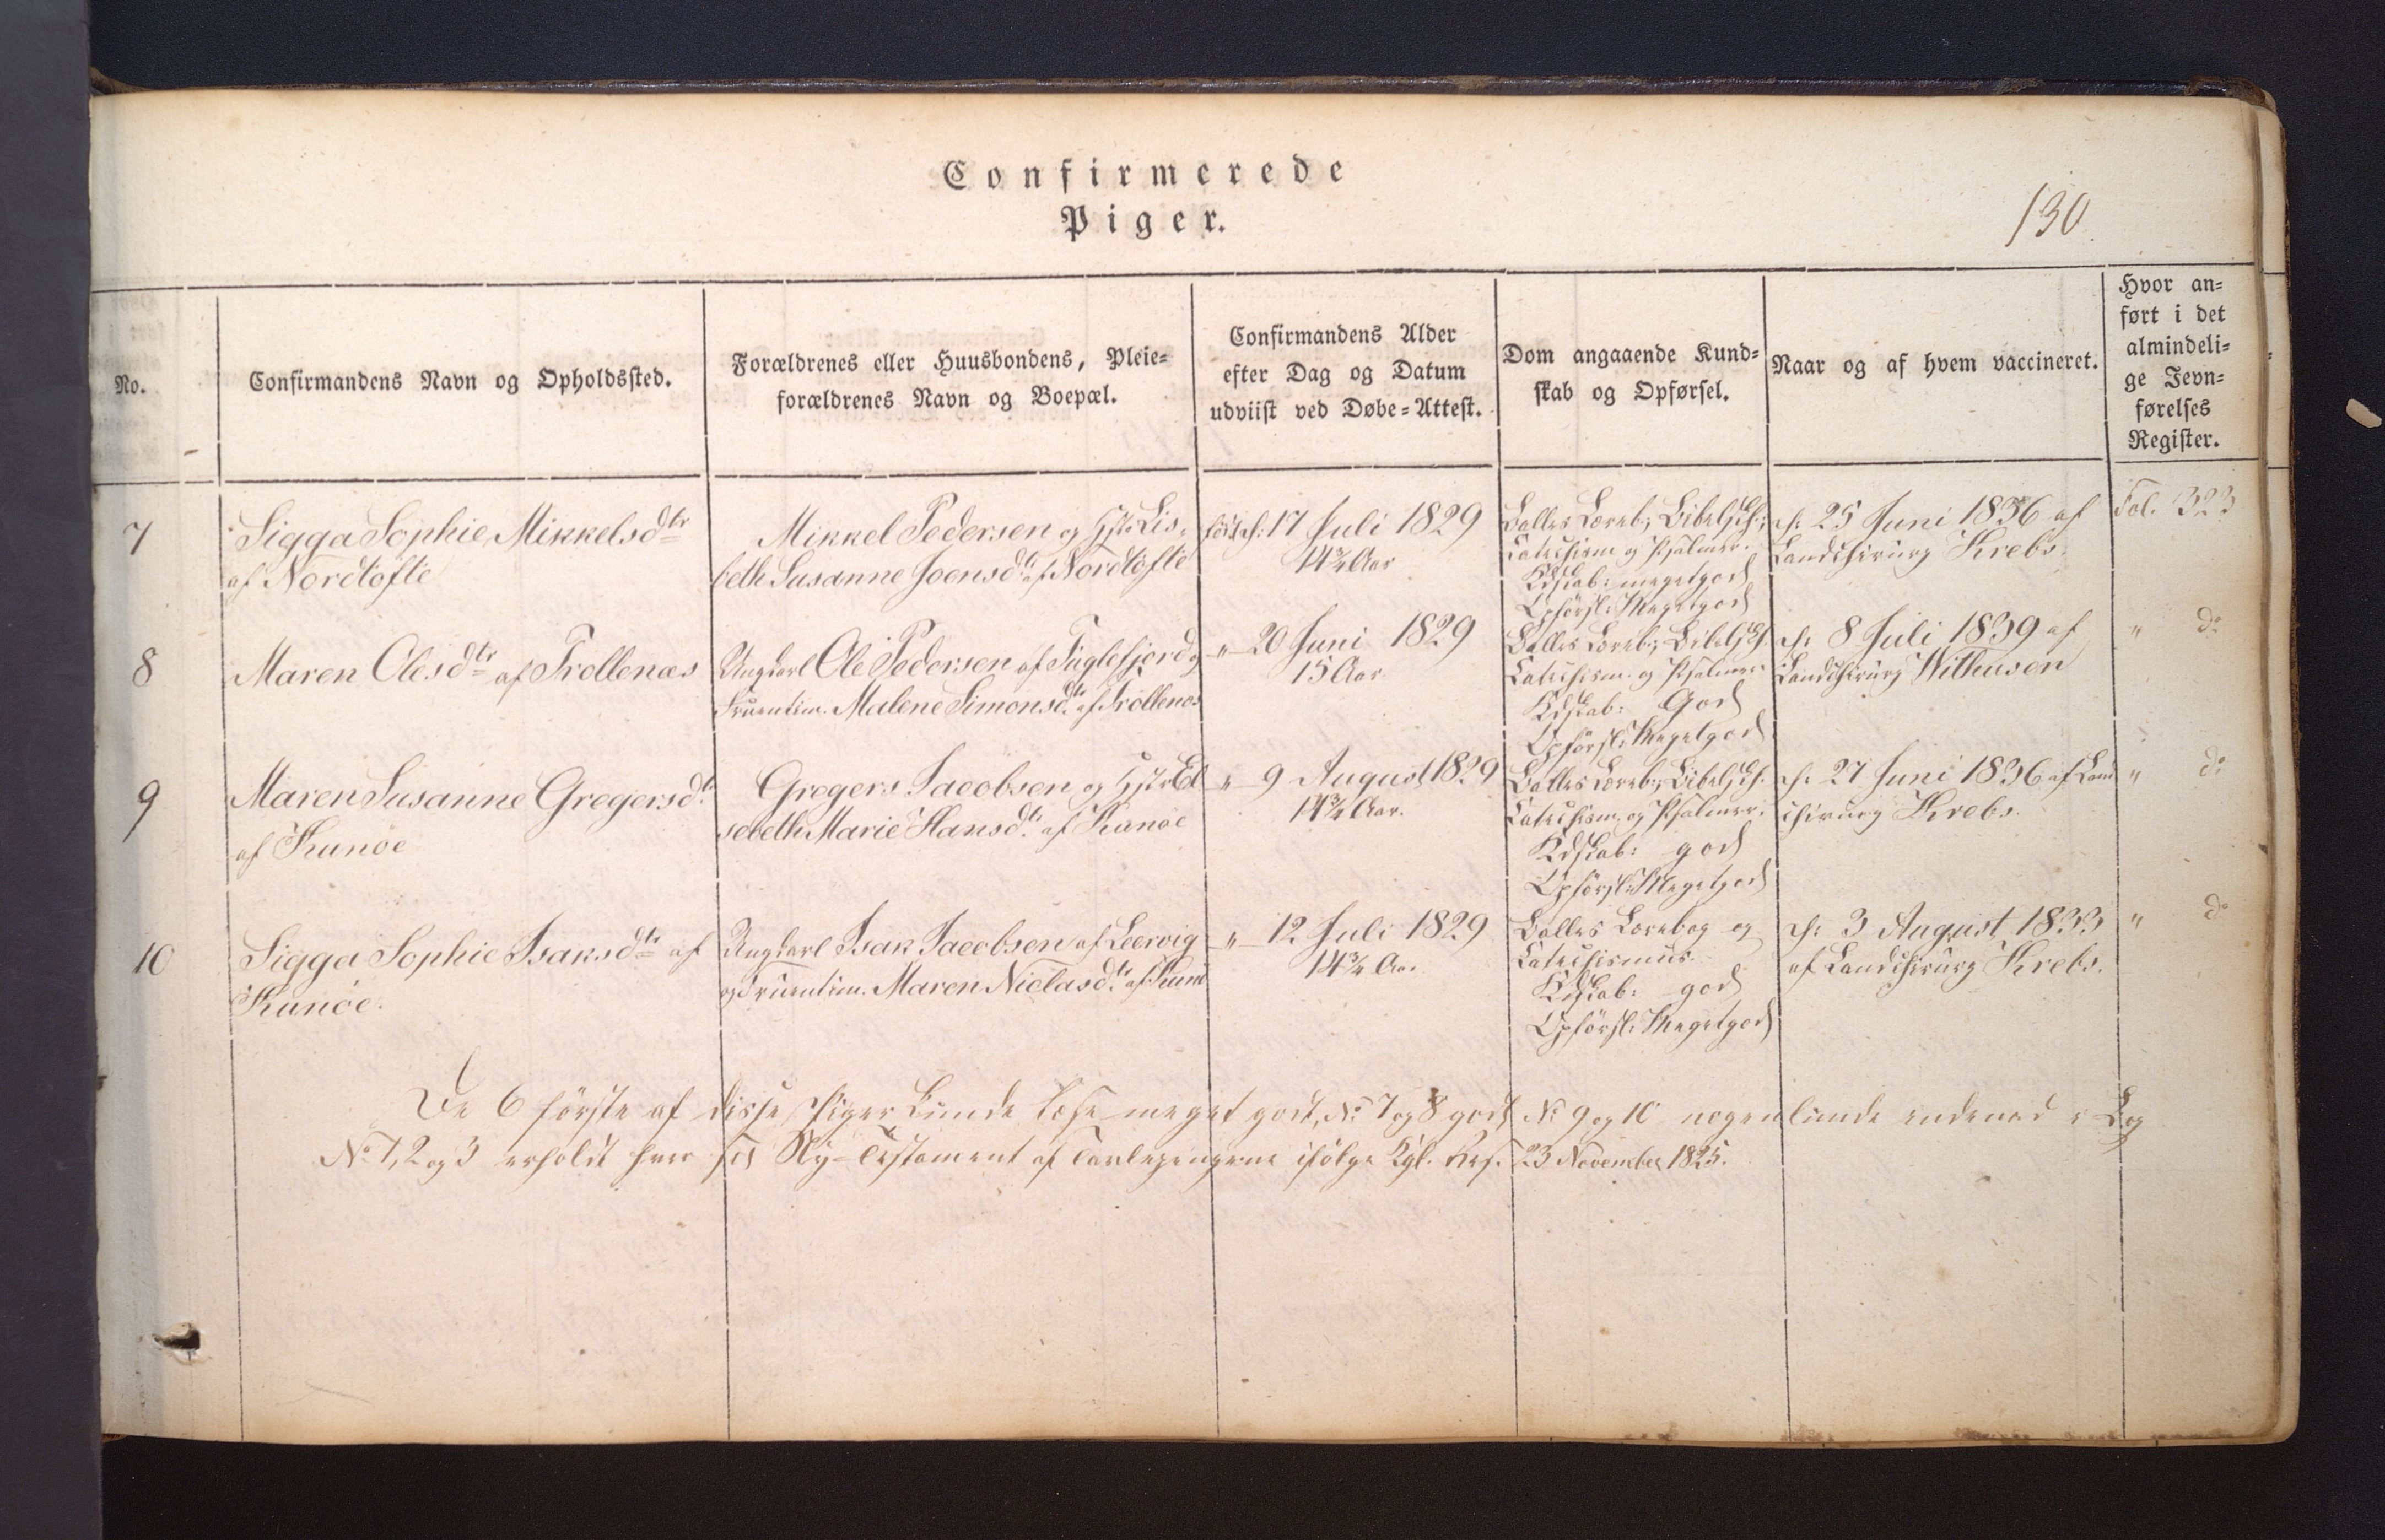 Confirmerede
Piger.
130.
No.
Confirmandens Navn og Opholdssted.
Forældrenes eller Huusbondens, Pleie-
forældrenes Navn og Boepæl.
Confirmandens Alder
efter Dag og Datum
udviist ved Døbe-Attest.
Dom angaaende Kund-
skab og Opførsel.
Naar og af hvem vaccineret.
Hvor an-
ført i det
almindeli-
ge Jevn-
førelses
Register.
7
Sigga Sophie Mikkelsdtr
af Nordtofte
Mikkel Pedersen og Hstr Lis-
beth Susanne Joensdtr af Nordtofte
født d: 17 Juli 1829
14¾ Aar
Balles Læreb; Bibelhist;
Catechism og Psalmer.
Kdskab: megetgod
Opførsl: Megetgod
d: 25 Juni 1836 af
Landchirurg Krebs.
Fol. 323
8
Maren Olesdtr af Trollenæs
Ungkarl Ole Pedersen af Fuglefjord og
Fruentim. Malene Simonsdtr af Trollenæs
" 20 Juni 1829
15 Aar
Balles Læreb; Bibelhist.
Catechism. og Psalmer
Kdskab: God
Opførsl: Megetgod
d: 8 Juli 1839 af
Landchirurg Withusen
" do
9
Maren Susanne Gregersdtr
af Kunöe
Gregers Jacobsen og Hstr El-
sebeth Marie Hansdtr af Kunöe
" 9 August 1829
14¾ Aar.
Balles Læreb; Bibelhist.
Catechism. og Psalmer.
Kdskab: god
Opførsl: Megetgod
d: 27 Juni 1836 af Land
chirurg Krebs.
" do
10
Sigga Sophie Isaksdtr af
Kunöe.
Ungkarl Isak Jacobsen af Leervig
og Fruentim. Maren Niclasdtr af Kunö
" 12 Juli 1829
14¾ Aar
Balles Lærebog og
Catechismus.
Kdskab: god
Opførsl: Megetgod
d: 3 August 1833
af Landchirurg Krebs.
" do
De 6 første af disse Piger kunde læse meget godt, No 7 og 8 godt No 9 og 10 nogenlunde indenad i Bog
No 1, 2 og 3 erholdt hver sit Ny-Testament af Tavlepengene ifølge Kgl. Res. 23 November 1825.